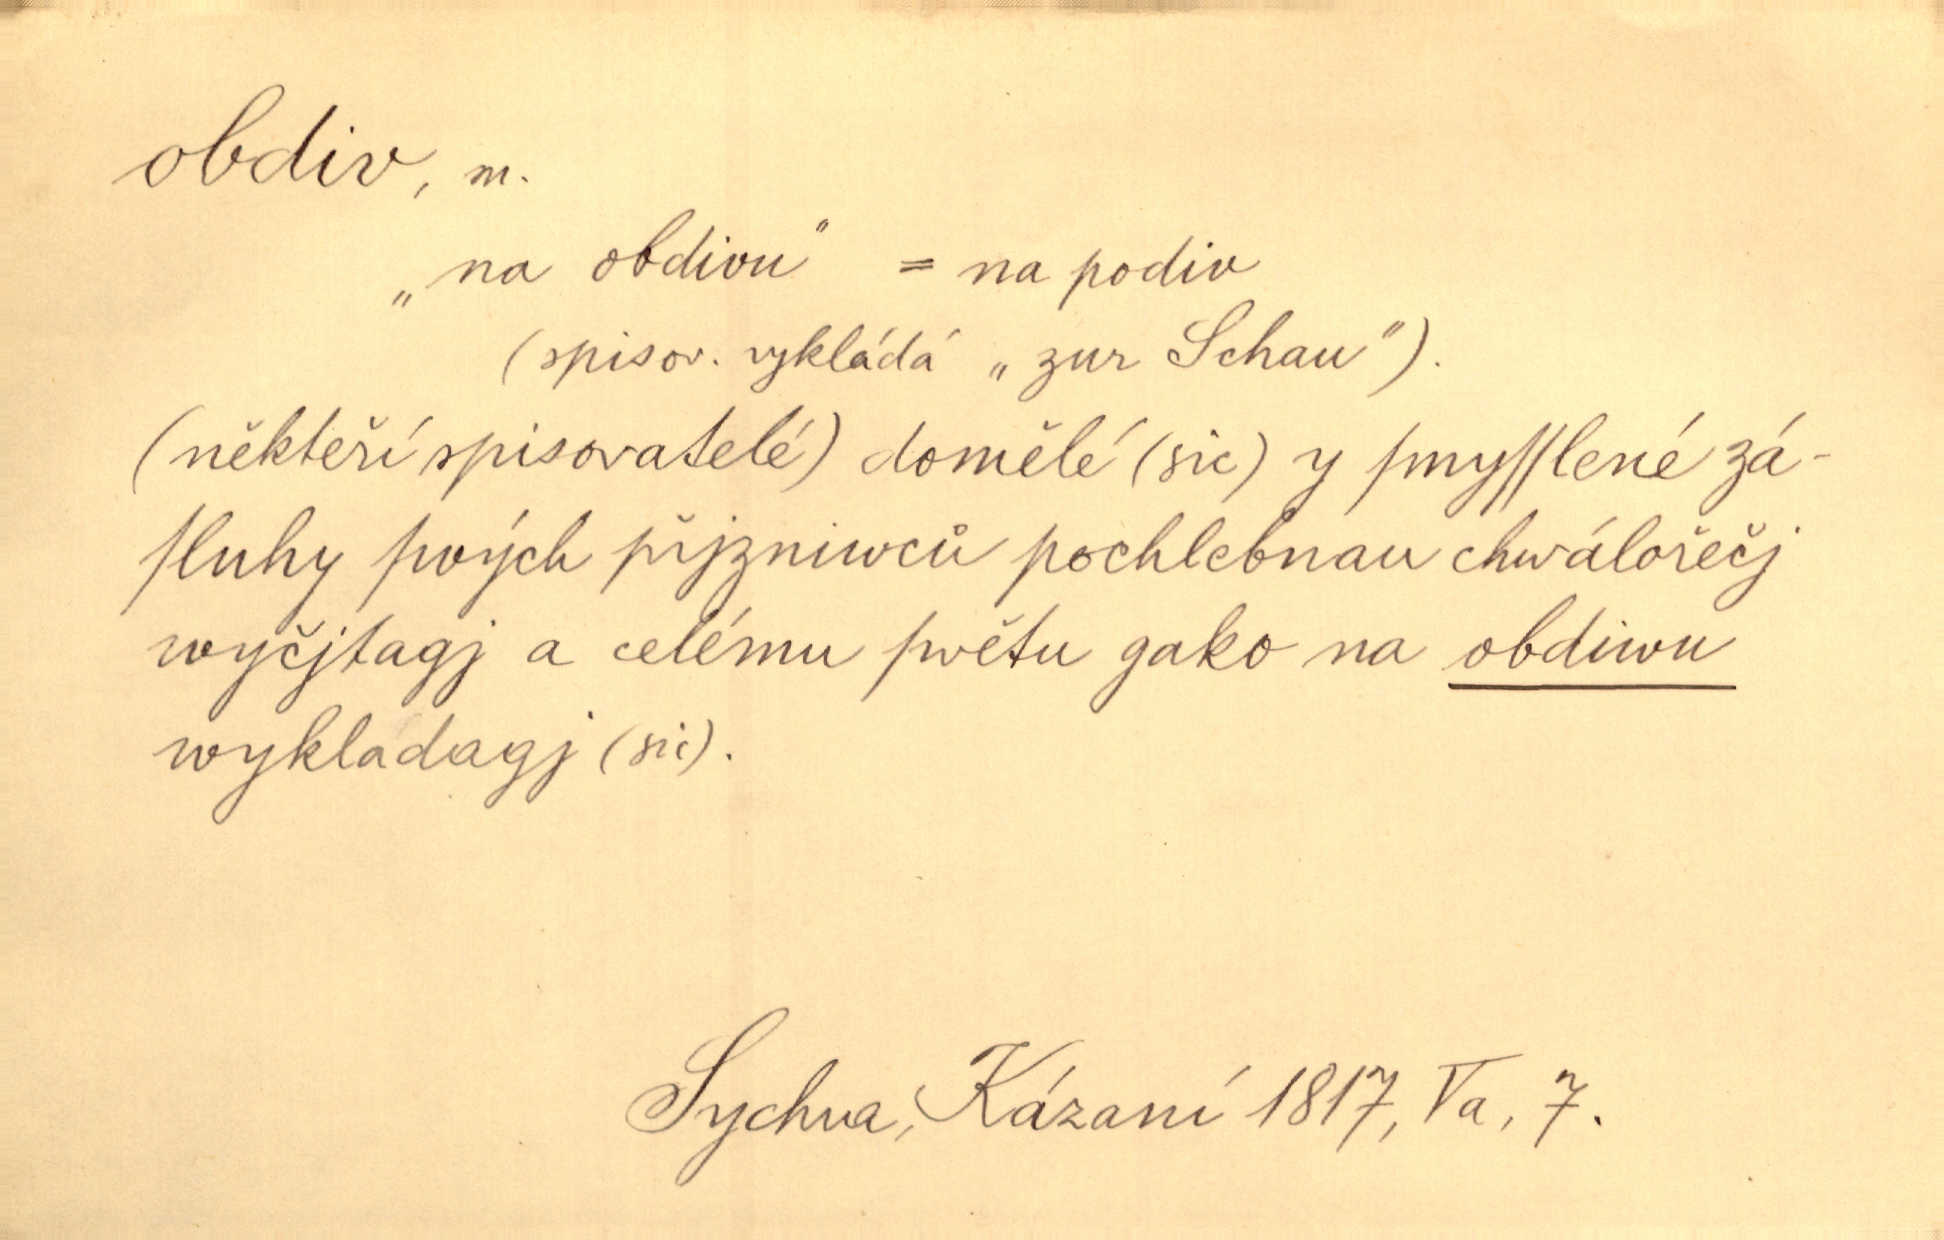 obdiv, m.
„na obdivu" = na podiv
(spisov. vykládá „zur Schau").
(někteří spisovatelé) domělé (sic) y ſmyſſlené zá-
ſluhy ſvých přjzniwců pochlebnau chwálořečj
wyčjtagj a celému ſwětu gako na obdiwu
wykladagj (sic).
Sychra, Kázaní 1817, Va, 7.